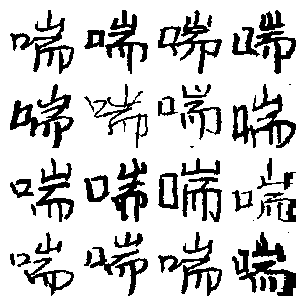 喘喘喘喘
喘喘喘喘
喘喘喘喘
喘喘喘喘